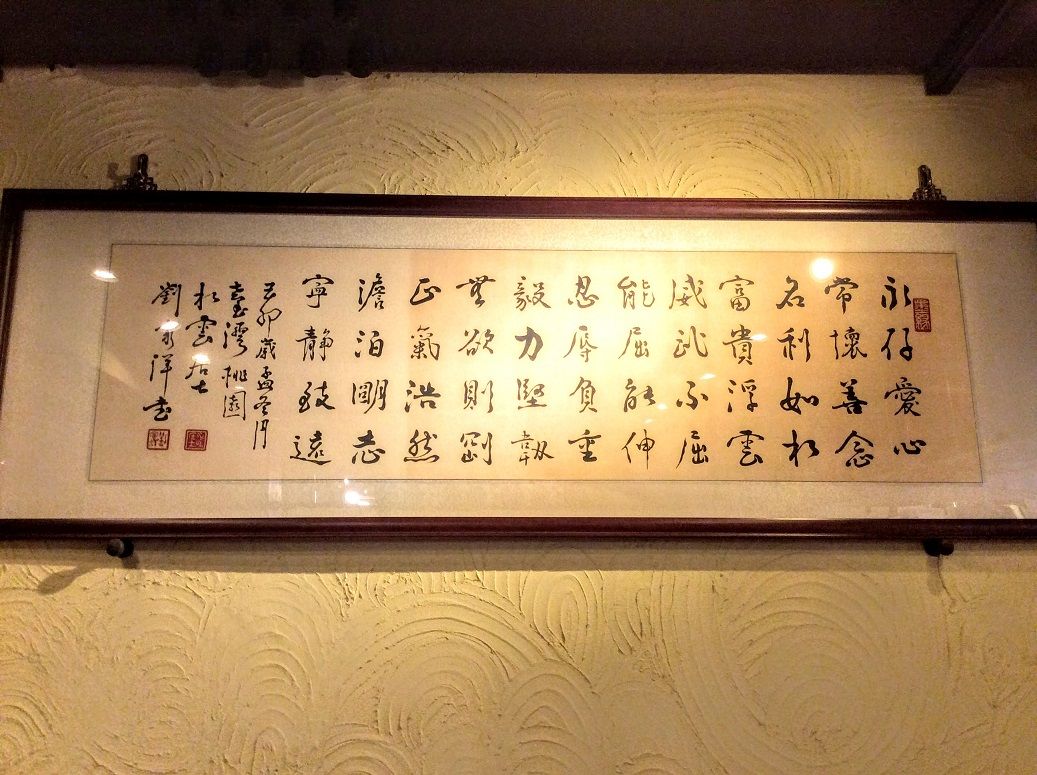 永存愛心
常懷善念
名利如水
富貴浮雲
威武不屈
能屈能伸
忍辱負重
毅力堅韌
無欲則剛
正氣浩然
澹泊明志
寧靜致遠
己卯歲孟冬月
臺灣桃園
松雲居士
劉家洋書